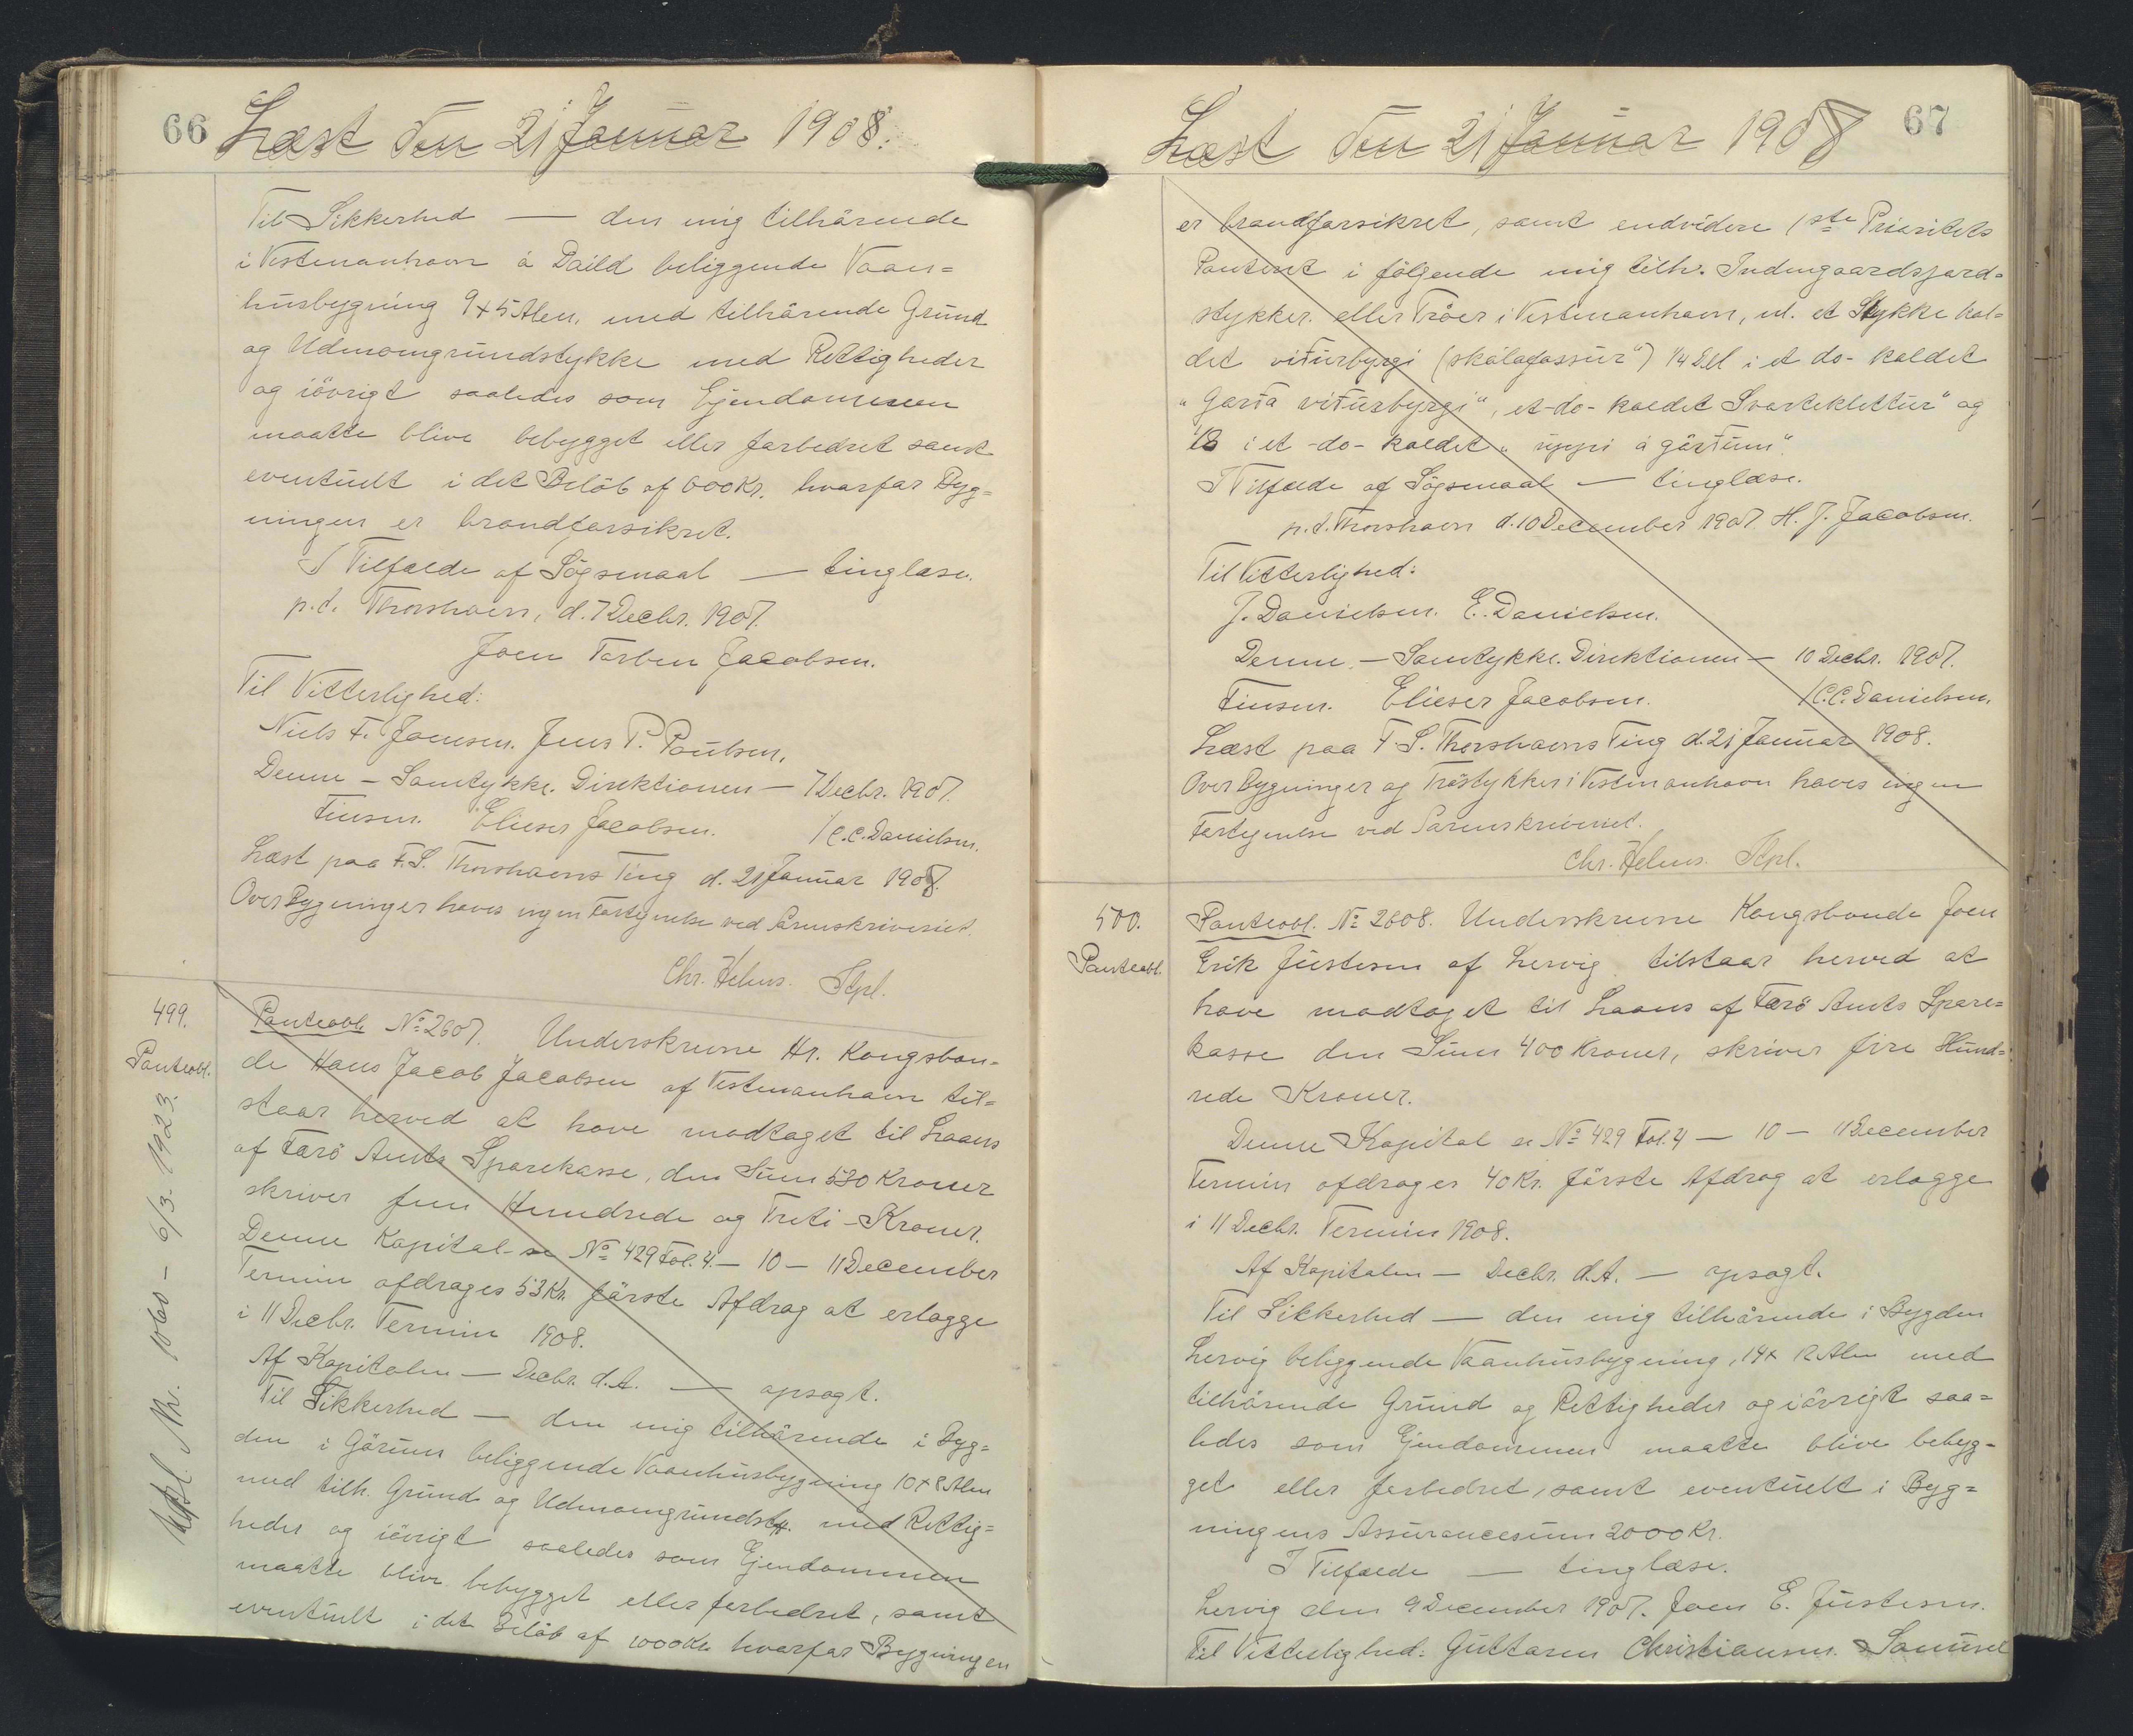 66 Læst den 21 Januar 1908.
Til Sikkerhed — den mig tilhörende
i Vestmanhavn á Daild beliggende Vaan=
husbygning 9 x 5 Alen, med tilhörende Grund
og Udmarngrundstykke med Rettigheder
og iövrigt saaledes som Ejendommen
maatte blive bebygget eller forbedret samt
eventuelt i det Belöb af 600 Kr. hvorfor Byg=
ningen er brandforsikret.
I Tilfælde af Sögsmaal — tinglæse.
p.t. Thorshavn, d. 7 Decbr. 1907.
Joen Torben Jacobsen.
Til Vitterlighed:
Niels F. Joensen. Jens P. Poulsen.
Denne — Samtykke. Direktionen — 7 Decbr. 1907.
Finsen. Elieser Jacobsen. / C.C. Danielsen.
Læst paa F.S. Thorshavns Ting d. 21 Januar 1908.
Over Bygninger haves ingen Fortegnelse ved Sorenskriveriet.
Chr. Helms. Stpl.
499.
Panteobl.
Panteobl. No 2607. Underskrevne Hr. Kongsbon=
de Hans Jacob Jacobsen af Vestmanhavn til=
staar herved at have modtaget til Laans
af Færö Amts Sparekasse, den Sum 530 Kroner
skriver fem Hundrede og Treti - Kroner.
Denne Kapital - se No 429 Fol. 4. — 10 — 11 December
Termin afdrages 53 Kr. förste Afdrag at erlægge
i 11 Decbr. Termin 1908.
Af Kapitalen — Decbr. d.A. — opsagt.
Til Sikkerhed — den mig tilhörende i Byg=
den i Görum beliggende Vaanhusbygning 10 x 8 Alen
med tilh. Grund og Udmarngrundst. med Rettig=
heder og iövrigt saaledes som Ejendommen
maatte blive bebygget eller forbedret, samt
eventuelt i det Belöb af 1000 Kr. hvorfor Bygningen
Nr. 1060 - 6/3. 1923.
Læst den 21 Januar 1908 67
er brandforsikret, samt endvidere 1ste Prioritets
Panteret i fölgende mig tilh. Indengaardsjord=
stykker eller Tröer i Vestmanhavn, nl. et Stykke kal=
det viturbyrgi (skálafossur") 1/4 Del i et do- kaldet
"Garta viturbyrgi", et -do- kaldet Svarteklettur" og
1/8 i et -do- kaldet "uppi á görtum".
I Tilfælde af Sögsmaal — tinglæse.
p.t. Thorshavn d. 10 December 1907. H. J. Jacobsen.
Til Vitterlighed:
J. Danielsen. E. Danielsen.
Denne — Samtykke. Direktionen — 10 Decbr. 1907.
Finsen. Elieser Jacobsen. / C.C. Danielsen.
Læst paa F.S. Thorshavns Ting d. 21 Januar 1908.
Over Bygninger og Tröstykker i Vestmanhavn haves ingen
Fortegnelse ved Sorenskriveriet.
Chr. Helms. Stpl.
500.
Panteobl.
Panteobl. No 2608. Underskrevne Kongsbonde Joen
Erik Justesen af Lervig tilstaar herved at
have modtaget til Laans af Færö Amts Spare=
kasse den Sum 400 Kroner, skriver fire Hund=
rede Kroner.
Denne Kapital se No 429 Fol. 4 — 10 — 11 December
Termin afdrages 40 Kr. förste Afdrag at erlægge
i 11 Decbr. Termin 1908.
Af Kapitalen — Decbr. d.A. — opsagt.
Til Sikkerhed — den mig tilhörende i Bygden
Lervig beliggende Vaanhusbygning, 14 x 12 Alen med
tilhörende Grund og Rettigheder og iövrigt saa=
ledes som Ejendommen maatte blive bebyg=
get eller forbedret, samt eventuelt i Byg=
ningens Assurancesum 2000 Kr.
I Tilfælde — tinglæse.
Lervig den 9 December 1907. Joen E. Justesen.
Til Vitterlighed: Guttorm Christiansen. Samuel